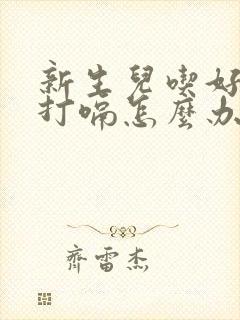 新生兒喫好
打嗝怎麼办
齊雷杰